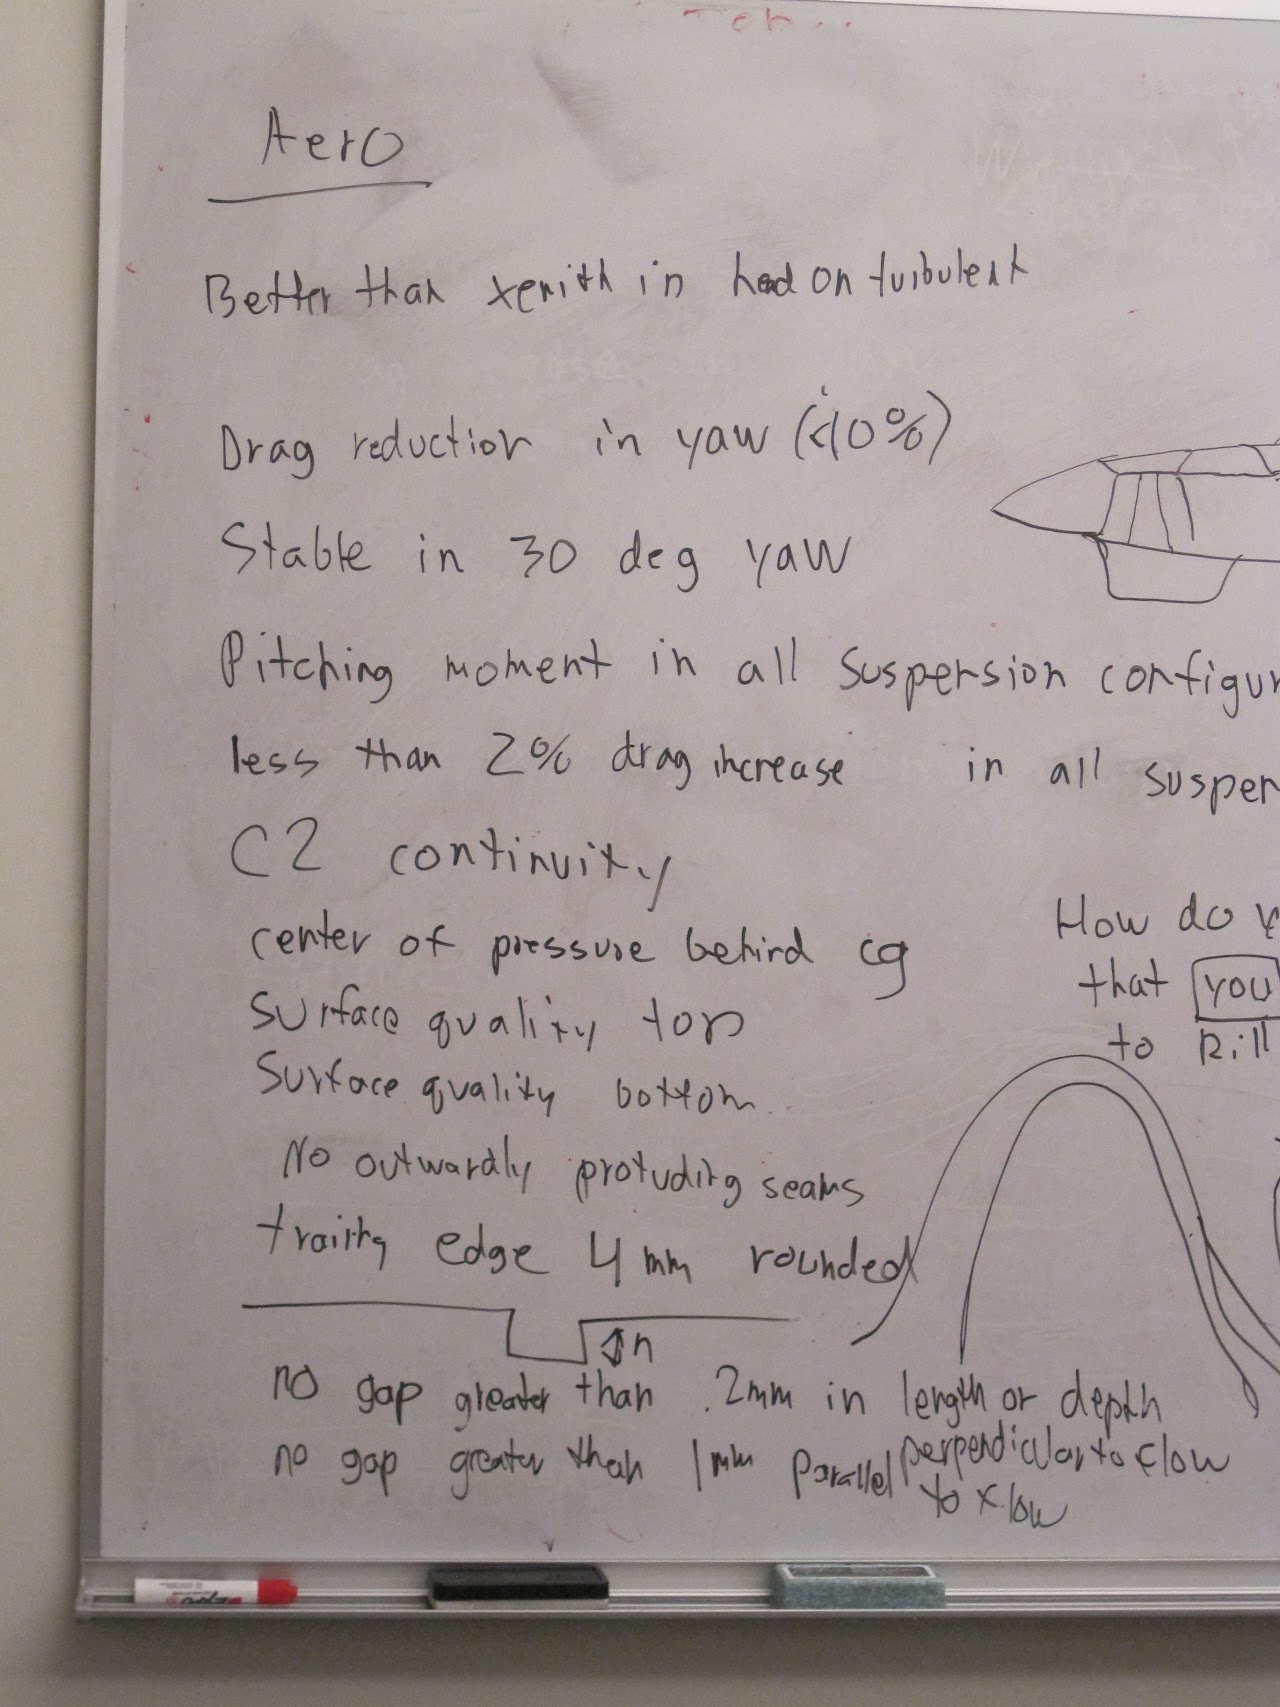 Aero
Better than xenith in head on turbulent
Drag reduction in yaw (<10%)
Stable in 30 deg yaw
Pitching moment in all suspension configur
less than 2% drag increase in all suspen
C2 continuity
center of pressure behind cg
surface quality top
Surface quality bottom
No outwardly protuding seams
trailing edge 4mm rounded
n
no gap greater than .2mm in length or depth
perpendicular to flow
no gap greater than 1mm parallel
to flow
How do y
that you
to kill